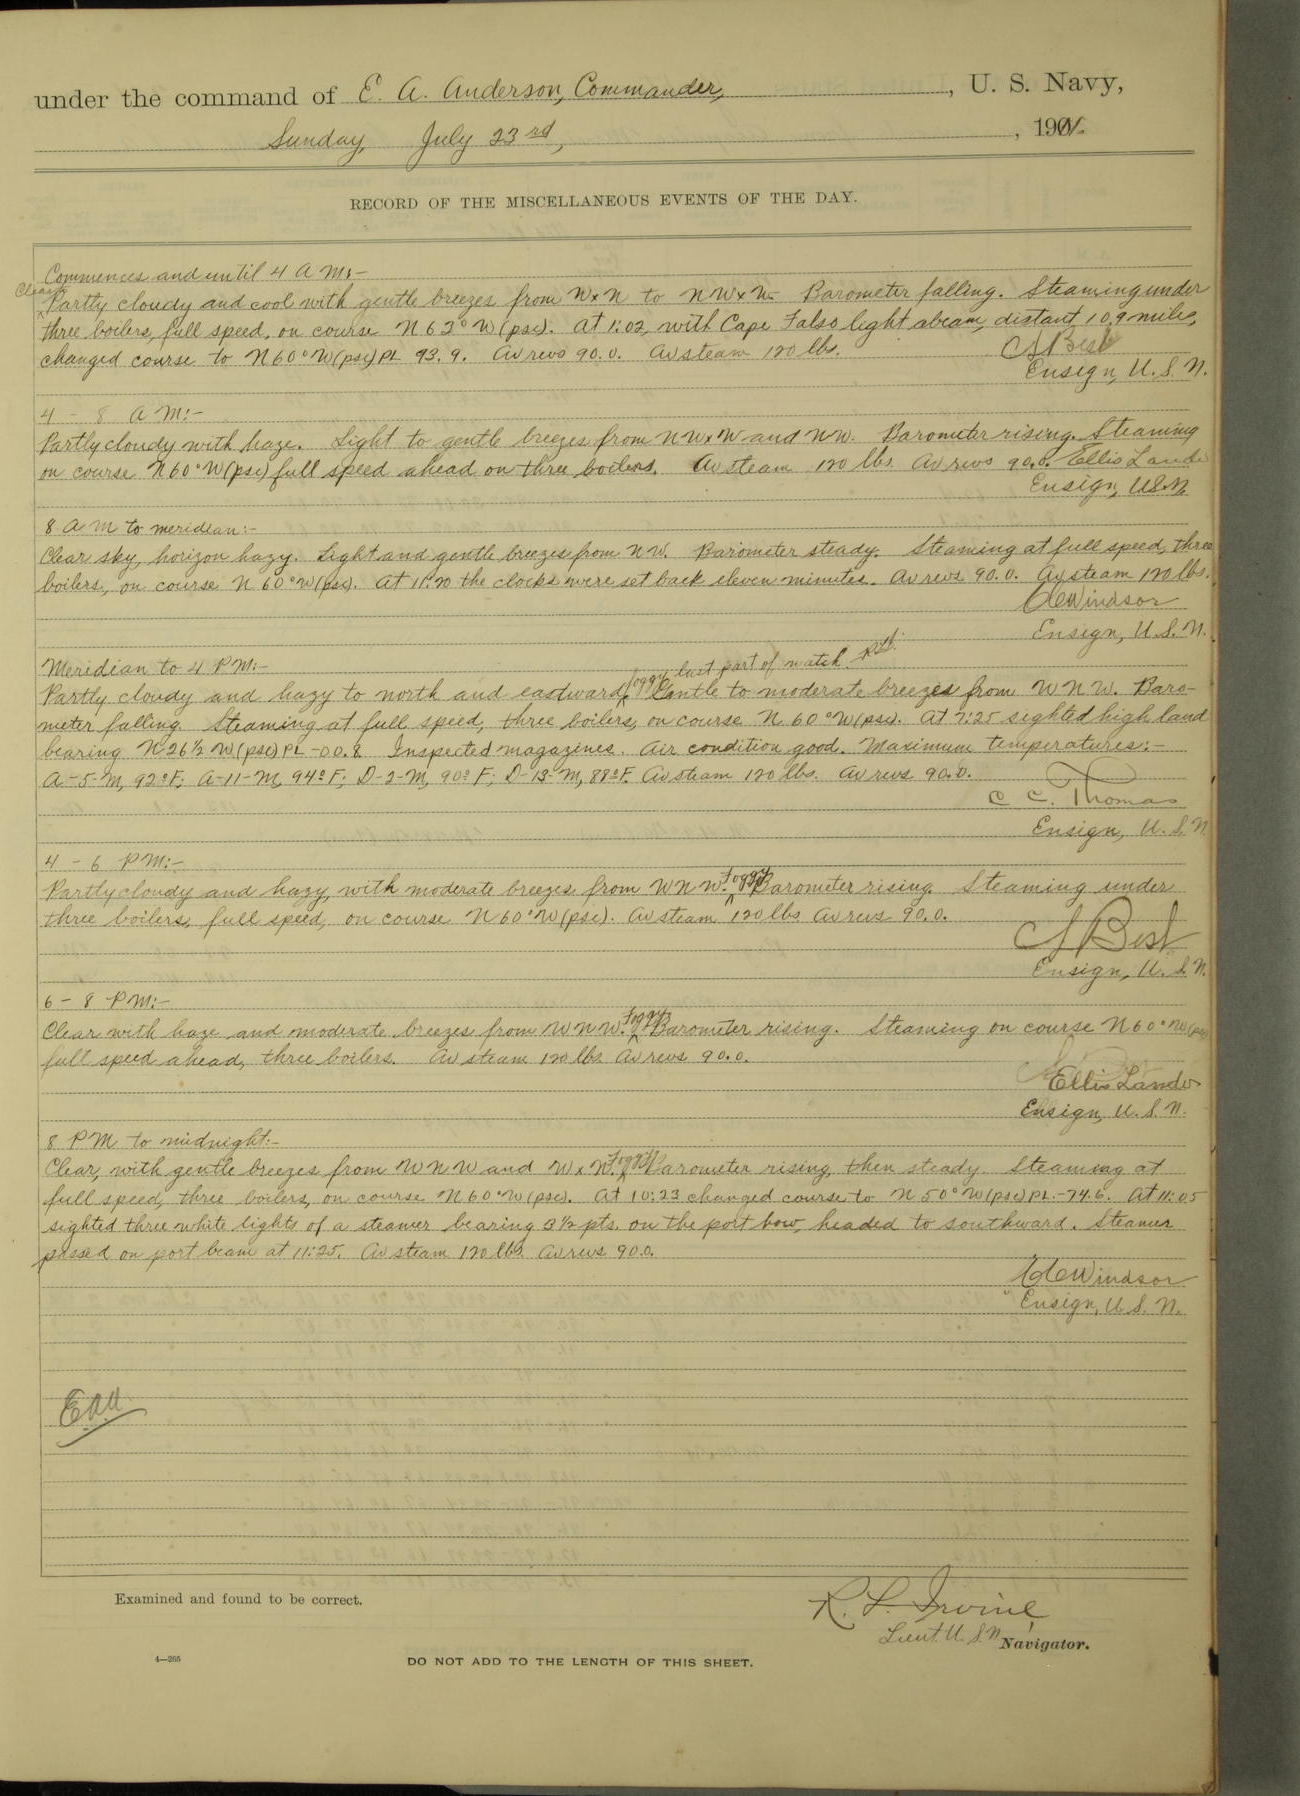 under the command of E. A. Anderson, Commander, , U. S. Navy,
Sunday, July 23rd, , 191
RECORD OF THE MISCELLANEOUS EVENTS OF THE DAY.
Commences and until 4 A M:-
Clear
Partly cloudy and cool with gentle breezes from WxN to NWxW. Barometer falling. Steaming under
three boilers, full speed, on course N 63° W (psc). At 1:02, with Cape Falso light abeam, distant 10.9 miles,
changed course to N 60° W (psc) PL 93.9. Av revs 90.0. Av steam 120 lbs.
C S Best
Ensign, U. S. N.
4 - 8 A M:-
Partly cloudy with haze. Light to gentle breezes from NWxW and NW. Barometer rising. Steaming
on course N 60° W (psc) full speed ahead on three boilers. Av steam 120 lbs. Av revs 90.0. Ellis Lando
Ensign, U.S.N.
8 A M to meridian:-
Clear sky, horizon hazy. Light and gentle breezes from NW. Barometer steady. Steaming at full speed, three
boilers, on course N 60° W (psc). At 11:20 the clocks were set back eleven minutes. Av revs 90.0. Av steam 120 lbs.
Windsor
Ensign, U. S. N.
Meridian to 4 P M:- foggy last part of watch.
Partly cloudy and hazy to north and eastward, Gentle to moderate breezes from W N W. Baro-
meter falling. Steaming at full speed, three boilers, on course N 60° W (psc). At 2:25 sighted high land
bearing N 26½ W (psc) PL - 00.8. Inspected magazines. Air condition good. Maximum temperatures:-
A-5-M, 92° F; A-11-M, 94° F; D-2-M, 90° F; D-13-M, 88° F. Av steam 120 lbs. Av revs 90.0.
C C. Thomas
Ensign, U. S. N.
4 - 6 P M:-
Partly cloudy and hazy, with moderate breezes from W N W. Foggy Barometer rising. Steaming under
three boilers, full speed, on course N 60° W (psc). Av steam 120 lbs Av revs 90.0.
C S Best
Ensign, U. S. N.
6 - 8 P M:-
Clear with haze and moderate breezes from W N W. Foggy Barometer rising. Steaming on course N 60° W (psc)
full speed ahead, three boilers. Av steam 120 lbs. Av revs 90.0.
Ellis Lando
Ensign, U. S. N.
8 P M to midnight:-
Clear, with gentle breezes from W N W and WxN. Foggy Barometer rising, then steady. Steaming at
full speed, three boilers, on course N 60° W (psc). At 10:23 changed course to N 50° W (psc) PL - 74.6. At 11:05
sighted three white lights of a steamer bearing 3½ pts. on the port bow, headed to southward. Steamer
passed on port beam at 11:25. Av steam 120 lbs. Av revs 90.0.
Windsor
Ensign, U. S. N.
E.A.A.
Examined and found to be correct.
R. L. Irvine
Lieut. U. S. N. Navigator.
4—265
DO NOT ADD TO THE LENGTH OF THIS SHEET.